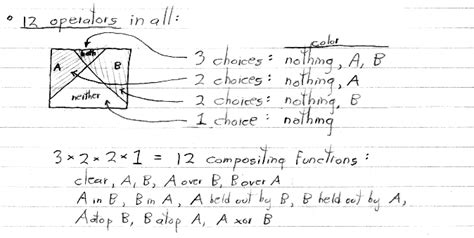 ° 12 operators in all:
color
both
A
B
neither
3 choices: nothing, A, B
2 choices: nothing, A
2 choices: nothing, B
1 choice: nothing
3 × 2 × 2 × 1 = 12 compositing functions:
clear, A, B, A over B, B over A
A in B, B in A, A held out by B, B held out by A,
A atop B, B atop A, A xor B